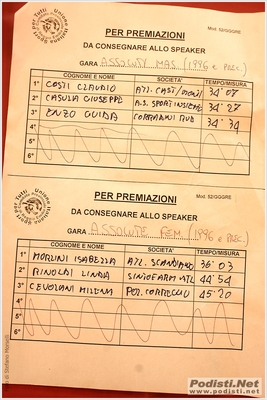 PER PREMIAZIONI
Mod. 52/GGGRE
DA CONSEGNARE ALLO SPEAKER
GARA ASSOLUTI MAS. (1996 e PREC.)
COGNOME E NOME SOCIETA' TEMPO/MISURA
1° COSTI CLAUDIO ATL. 34' 07
2° CASULA GIUSEPPE A.S. SPORT INSIEME 34' 27
3° ENZO GUIDA CORRADINI RUB 34' 34
4°
5°
6°
PER PREMIAZIONI
Mod. 52/GGGRE
DA CONSEGNARE ALLO SPEAKER
GARA ASSOLUTE FEM. (1996 e PREC.)
COGNOME E NOME SOCIETA' TEMPO/MISURA
1° MORLINI ISABELLA ATL. SCANDIANO 36' 03
2° RINALDI LINDA SINTOFARM ATL 44' 54
3° CEVOLANI MILENA POD. CORREGGIO 45' 20
4°
5°
6°
Podisti.Net
Podisti.Net